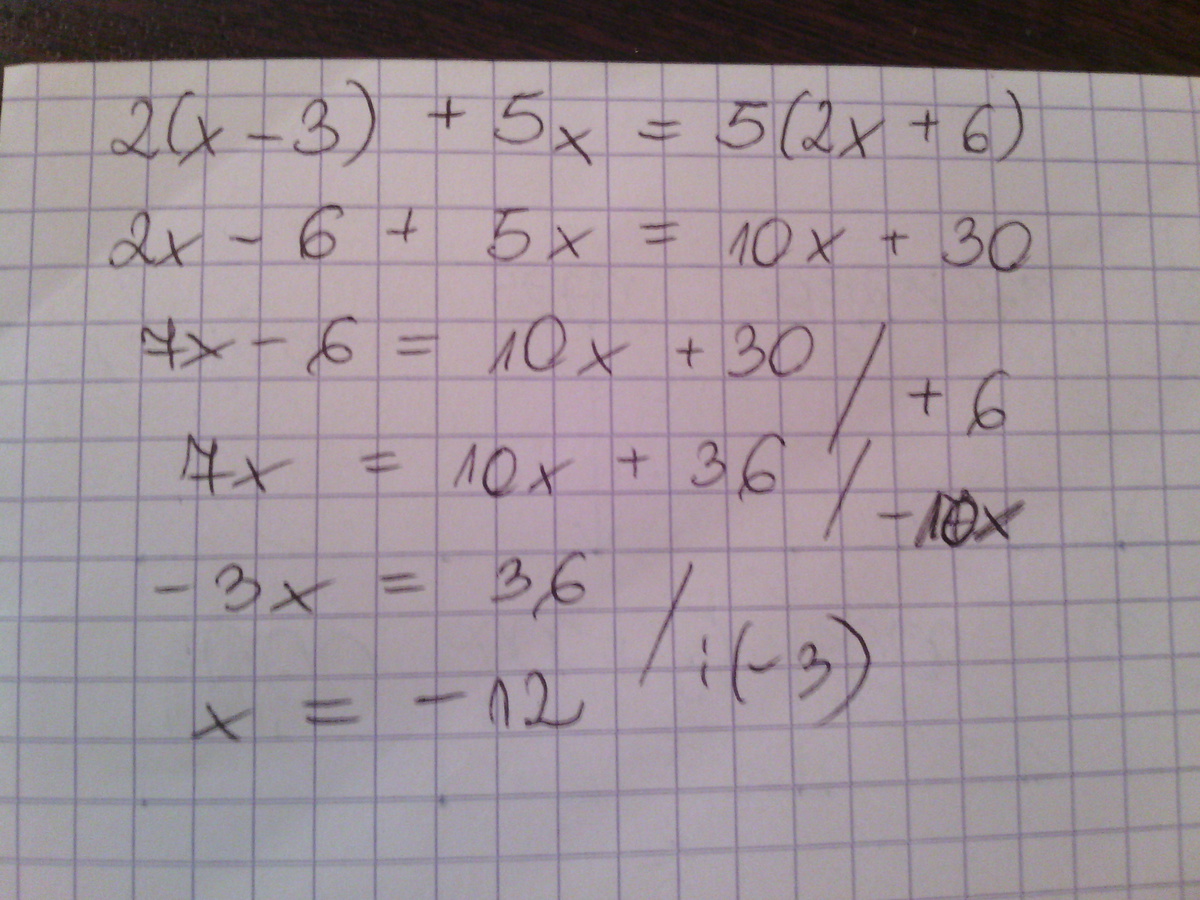 2(x - 3) + 5x = 5(2x + 6)
2x - 6 + 5x = 10x + 30
7x - 6 = 10x + 30 / + 6
7x = 10x + 36 / - 10x
- 3x = 36 / : (- 3)
x = - 12